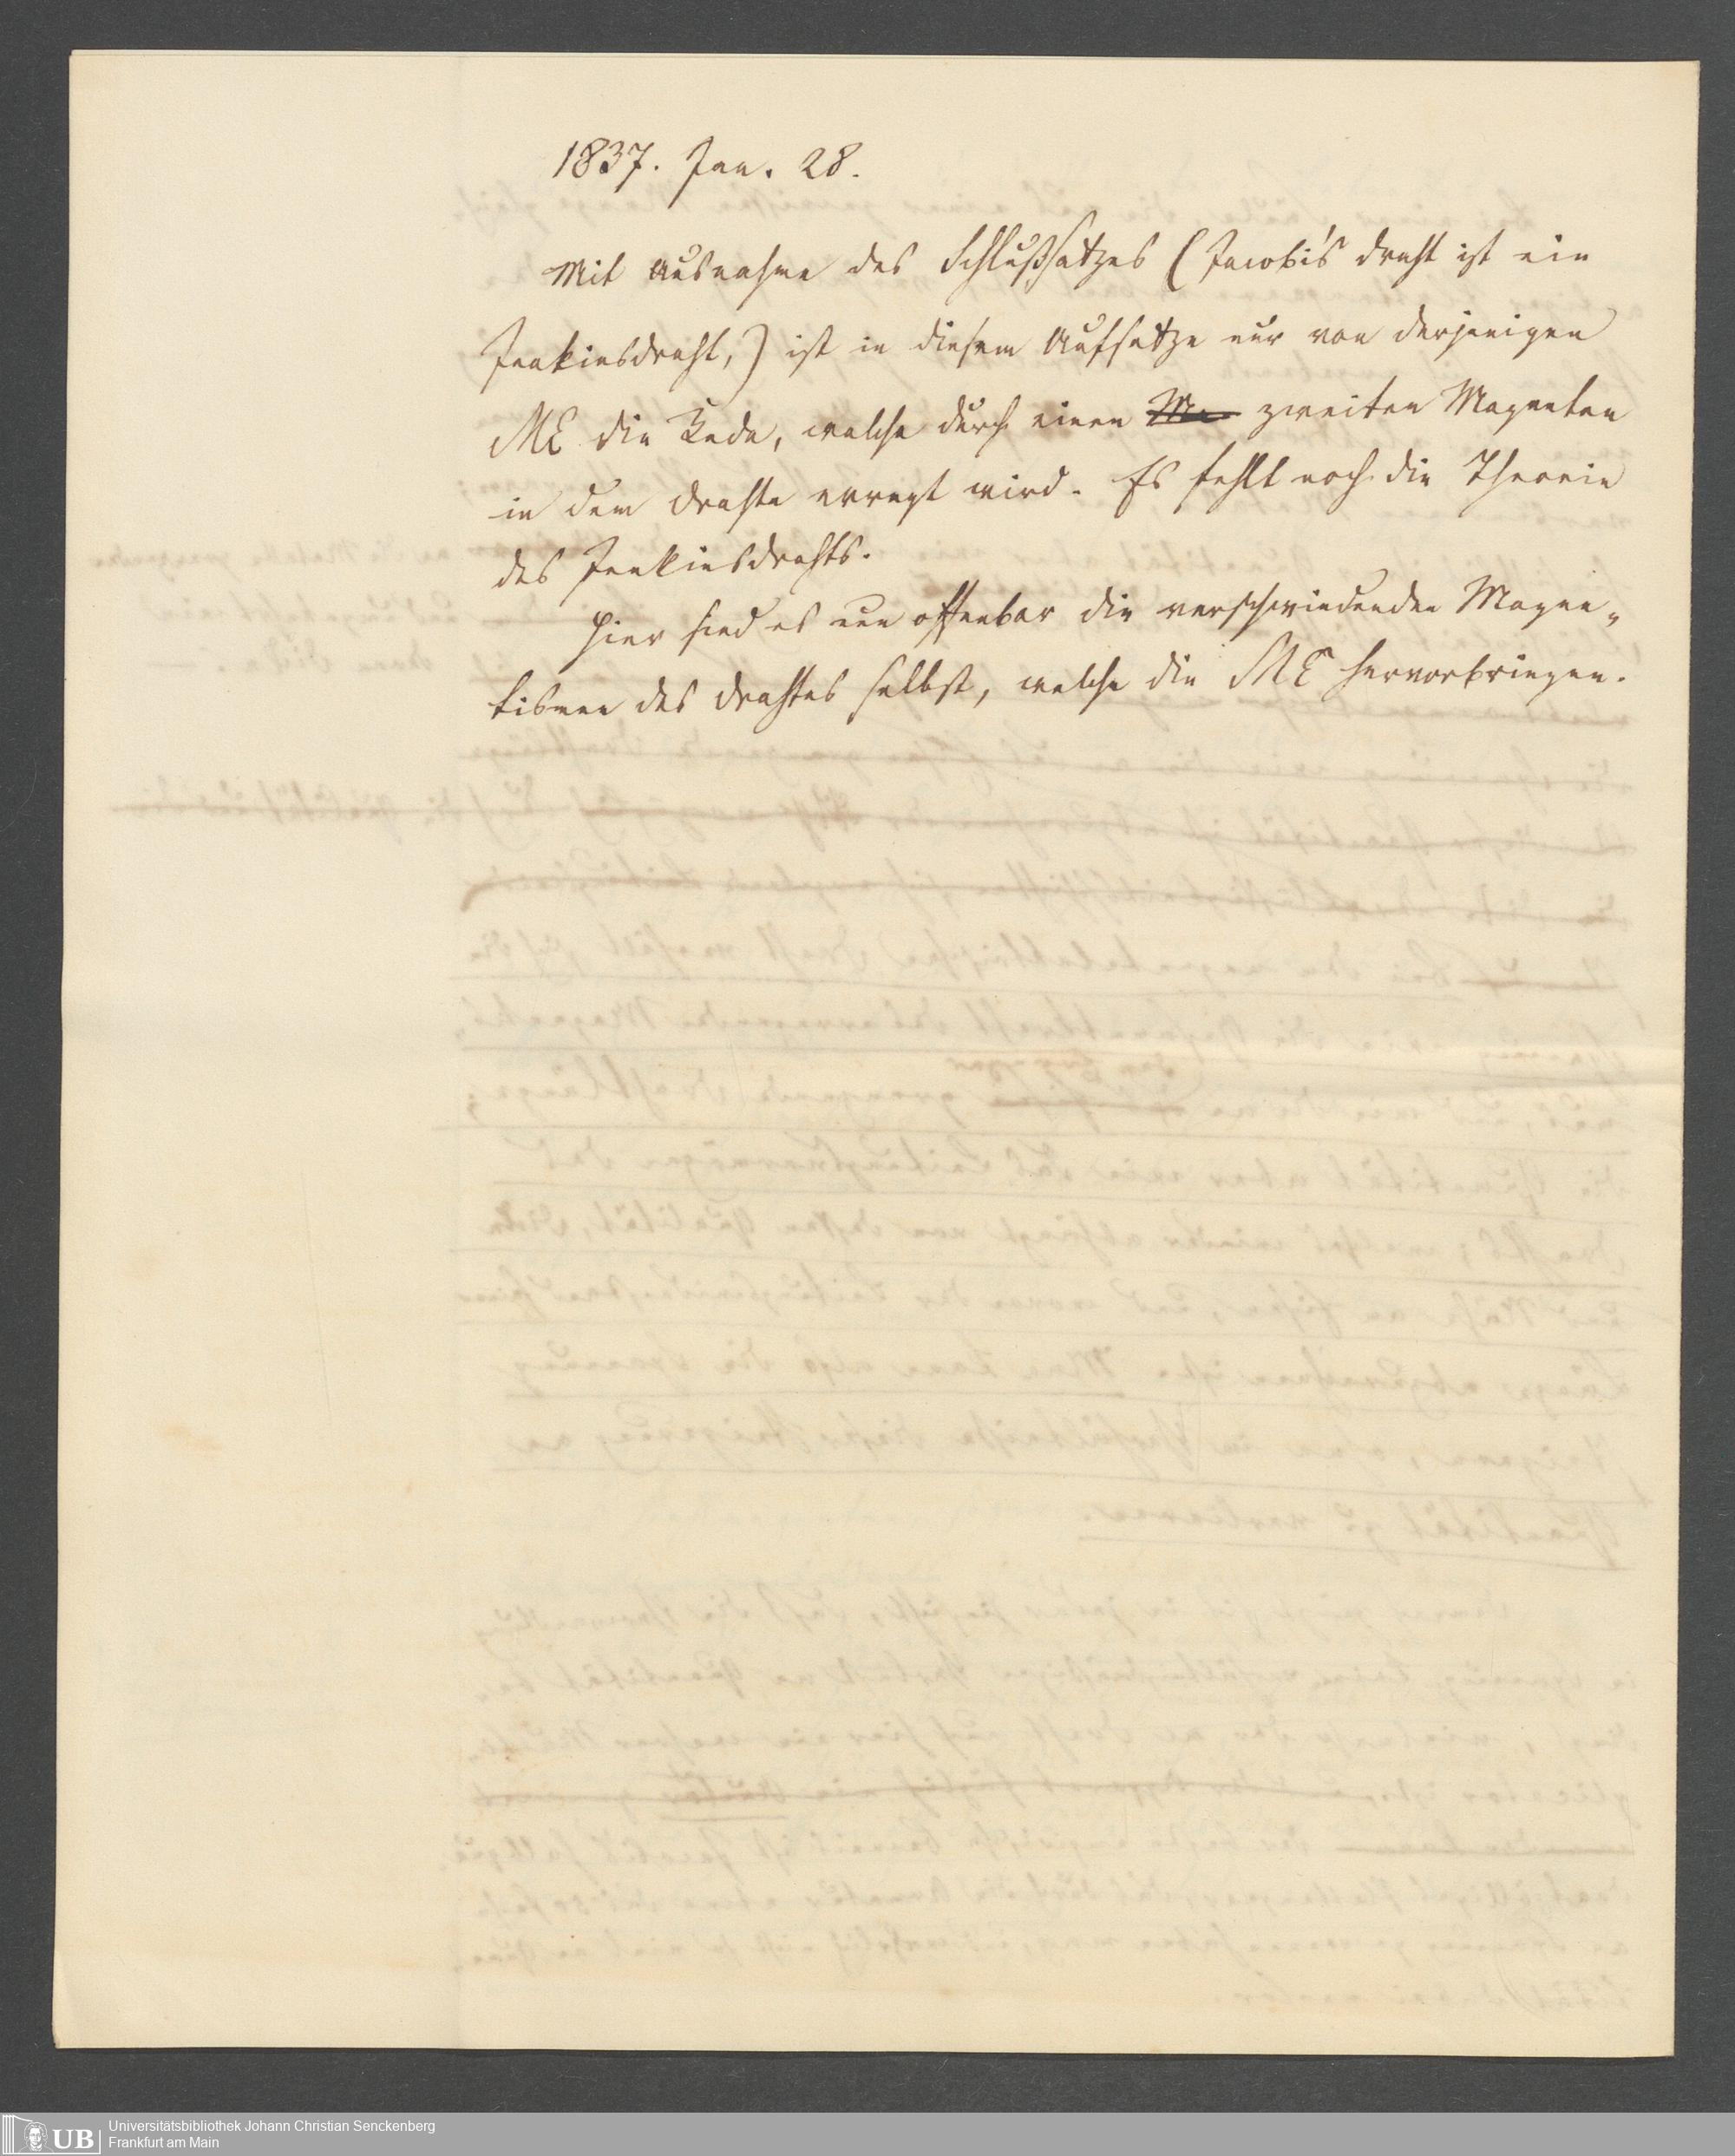 1837. Jan. 28.
Mit Ausnahme des Schlußsatzes (Jacobi's Draht ist ein
Jenkinsdraht,) ist in diesem Aufsatze nur von derjenigen
ME die Rede, welche durch einen zweiten Magneten
in dem Drahte erregt wird. Es fehlt noch die Theorie
des Jenkinsdrahts.
Hier sind es nun offenbar die verschwindenden Magne-
tismen des Drahtes selbst, welche die ME hervorbringen.
UB
Universitätsbibliothek Johann Christian Senckenberg
Frankfurt am Main